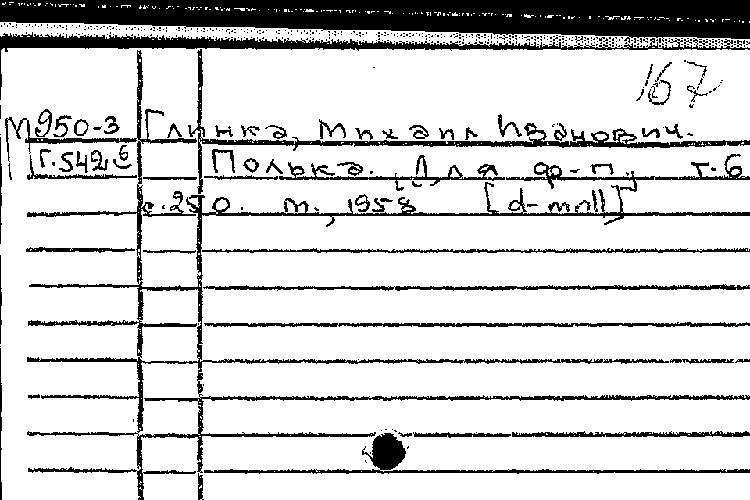 167
М950-3 Глинка, Михаил Иванович.
Г.542 Полька. [Для ф-п] т.6
с.250. М., 1958 [d-moll]